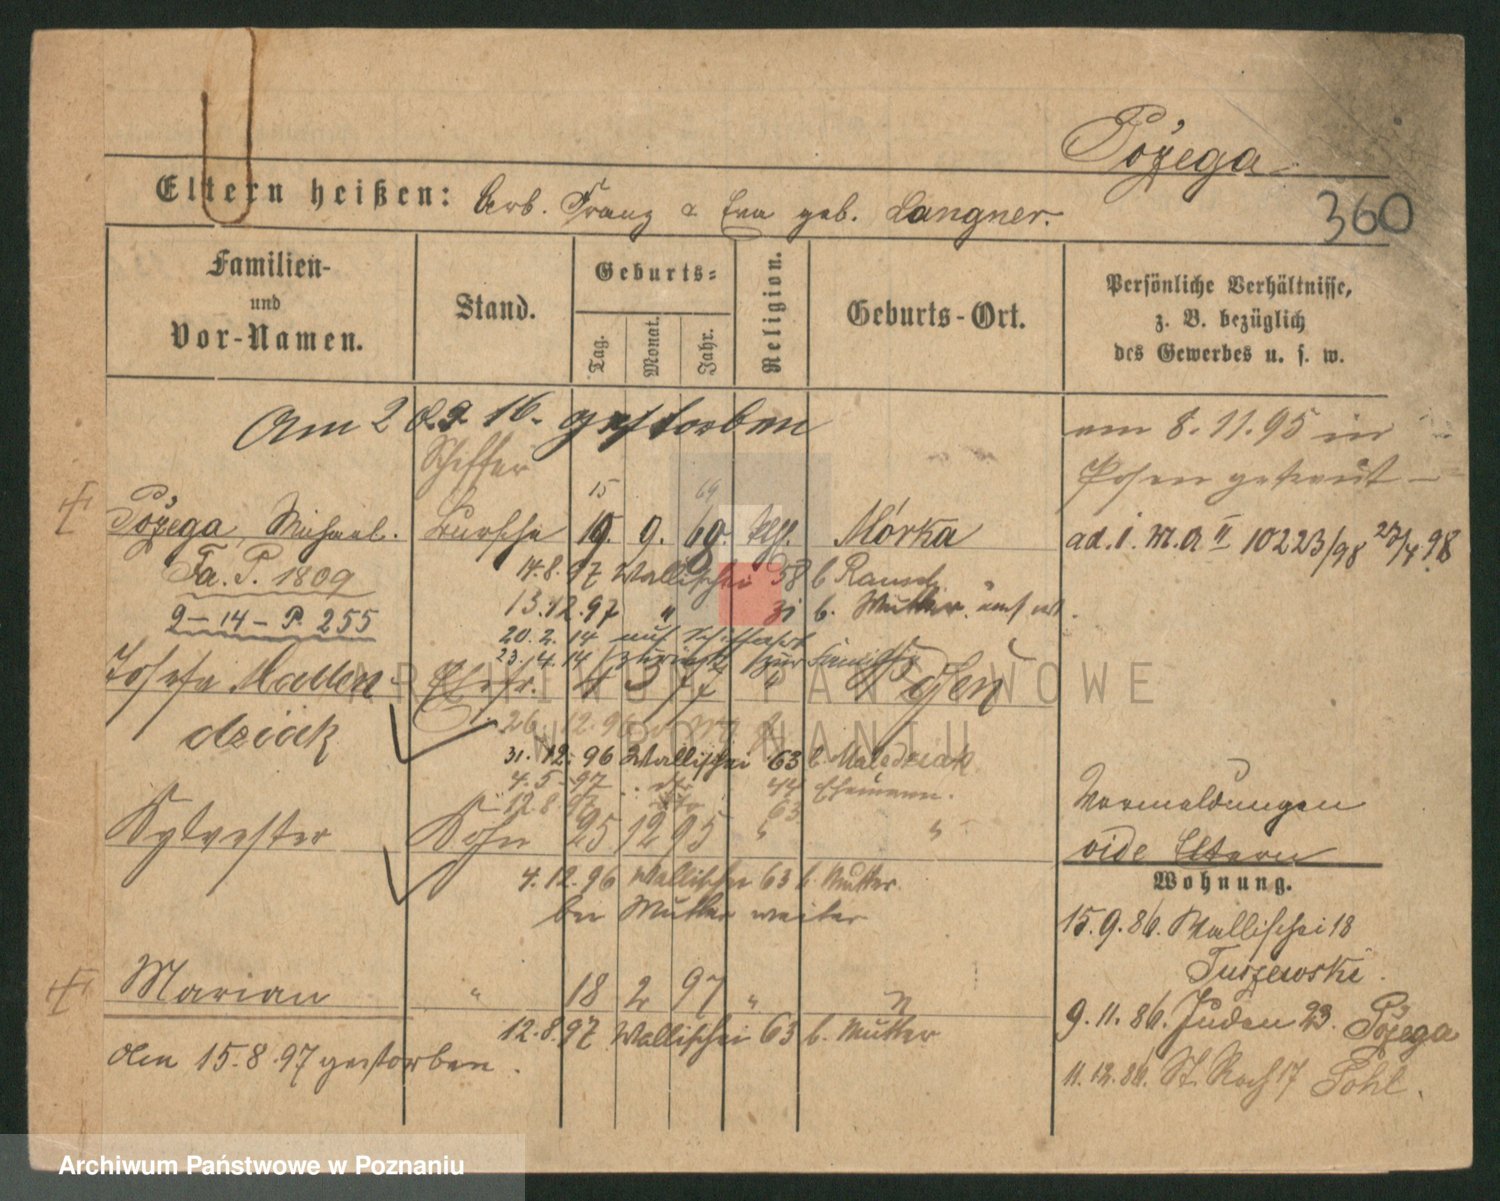 Pozega
360
Eltern heißen: Arb. Franz & Eva geb. Langner.
Familien- und Vor-Namen.
Stand.
Geburts-
Tag.
Monat.
Jahr.
Religion.
Geburts-Ort.
Persönliche Verhältnisse,
z. B. bezüglich
des Gewerbes u. s. w.
Am 2 8.9. 16. gestorben
am 8.11.95 in
Schiffer
Posen getraut
15 69
Pozega, Michael. Bursche 19. 9. 69. kth. Mórka
ad. i. m. a II 10223/98 27/4.98
Fa. P. 1809
14.8.97 Wallischei 58 b
9-14-P. 255
13.12.97 " 31 b. Mutter.
20.2.14 auf Schiffahrt
23.4.14 zurück zur Familie
Josefa Mallen- Ehefr. 4 3 77 " Posen
dziak
26.12.96
31.12.96 Wallischei 63 b. Maledziak
4.5.97 44 Ehemann.
12.8.97 63
Vermeldungen
Sylvester Sohn 25 12 95 " "
vide Eltern
Wohnung.
4.12.96 Wallischei 63 b. Mutter.
bei Mutter weiter
15.9.86. Wallischei 18
Tuszewski.
Marian " 18 2 97 " "
9.11.86. Juden 23. Pozega
12.8.97 Wallischei 63 b. Mutter
Am 15.8.97 gestorben.
11.12.86. St. Roch 17 Pohl.
ARCHIWUM PAŃSTWOWE
W POZNANIU
Archiwum Państwowe w Poznaniu